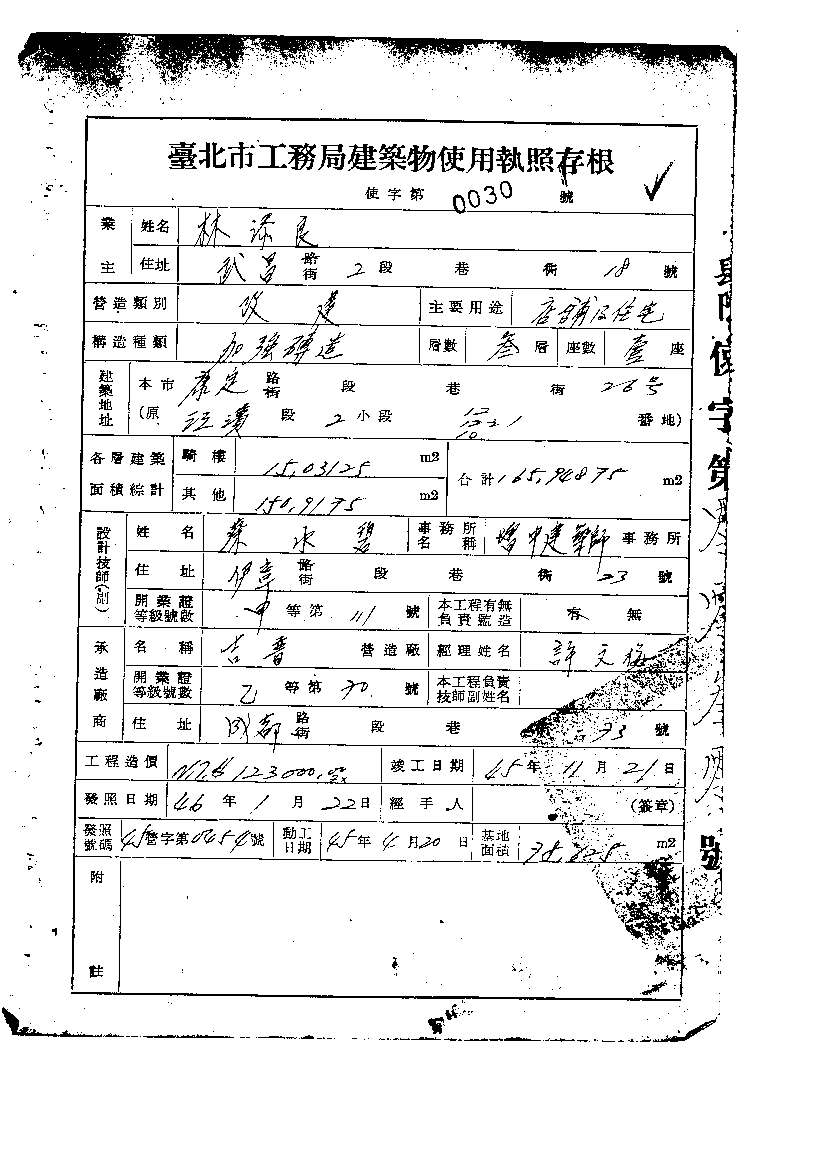 臺北市工務局建築物使用執照存根
使字第 0030 號
業主 姓名 林添良
住址 武昌 路街 2 段 巷 衖 18 號
營造類別 改建 主要用途 店舖及住宅
構造種類 加強磚造 層數 叁 層 座數 壹 座
建築地址 本市 康定 路街 段 巷 衖 26号
(原 段 2 小段 番地)
各層建築面積綜計 騎樓 15,03125 m2 合計 165,94875 m2
其他 150,9175 m2
設計技師(副) 姓名 蔡水 事務所名稱 建築師 事務所
住址 伊寧 路街 段 巷 衖 23 號
開業證等級號數 甲 等第 111 號 本工程有無負責監造 有 無
承造廠商 名稱 吉普 營造廠 經理姓名 許文
開業證等級號數 乙 等第 70 號 本工程負責技師副姓名
住址 成都 路街 段 巷 衖 73 號
工程造價 NT$123000.00 竣工日期 45年11月21日
發照日期 46年1月22日 經手人 (簽章)
發照號碼 45營字第0454號 動工日期 45年4月20日 基地面積 m2
附註
使字第
號